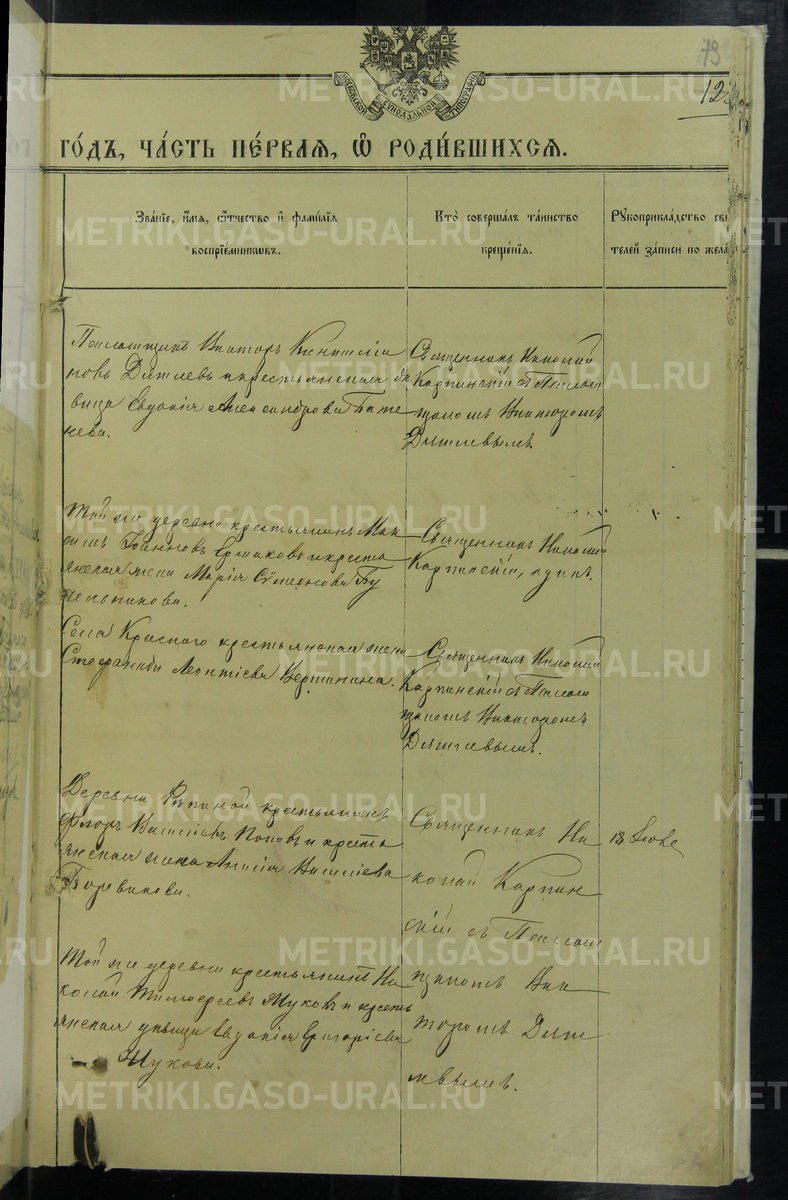 79
12
МОСКОВСКОЙ СУНОДАЛЬНОЙ ТИПОГРАФІИ
ГО́ДЪ, ЧА́СТЬ ПЕ́РВАЯ, Ѡ҆ РОДИ́ВШИХСЯ.
Зва́нїе, и҆́мя, ѻ҆́тчество и҆ фами́лїя
воспрїе́мникѡвъ.
Кто̀ соверша́лъ та́инство
креще́нїя.
Рꙋкоприкла́дство сви
телей за́писи по жела
Псаломщикъ Викторъ
новъ Дягилевъ и крестьянская дѣ
вица Евдокія Александрова Бате
нева.
Священникъ Николай
Карпинскій съ Псалом
щикомъ Викторомъ
Дягилевымъ.
Той же деревни крестьянинъ Мак
симъ Іоанновъ Ермаковъ и кресть
янская жена Марія Сѵмеонова Бу
тельникова.
Священникъ Николай
Карпинскій,
Села Краснаго крестьянская жена
Стефанида Леонтіева Вершинина.
Священникъ Николай
Карпинскій съ Псалом
щикомъ Викторомъ
Дягилевымъ.
Деревни Рѣпиной крестьянинъ
Флоръ Василіевъ Поповъ и кресть
янская жена Анисія Василіева
Боровикова.
Священникъ Ни
колай Карпин
скій съ Псалом
щикомъ Вик
торомъ Дяги
левымъ.
13
Той же деревни крестьянинъ Ни
колай Тимоѳеевъ Жуковъ и кресть
янская дѣвица Евдокія Григоріева
Жукова.
METRIKI.GASO-URAL.RU